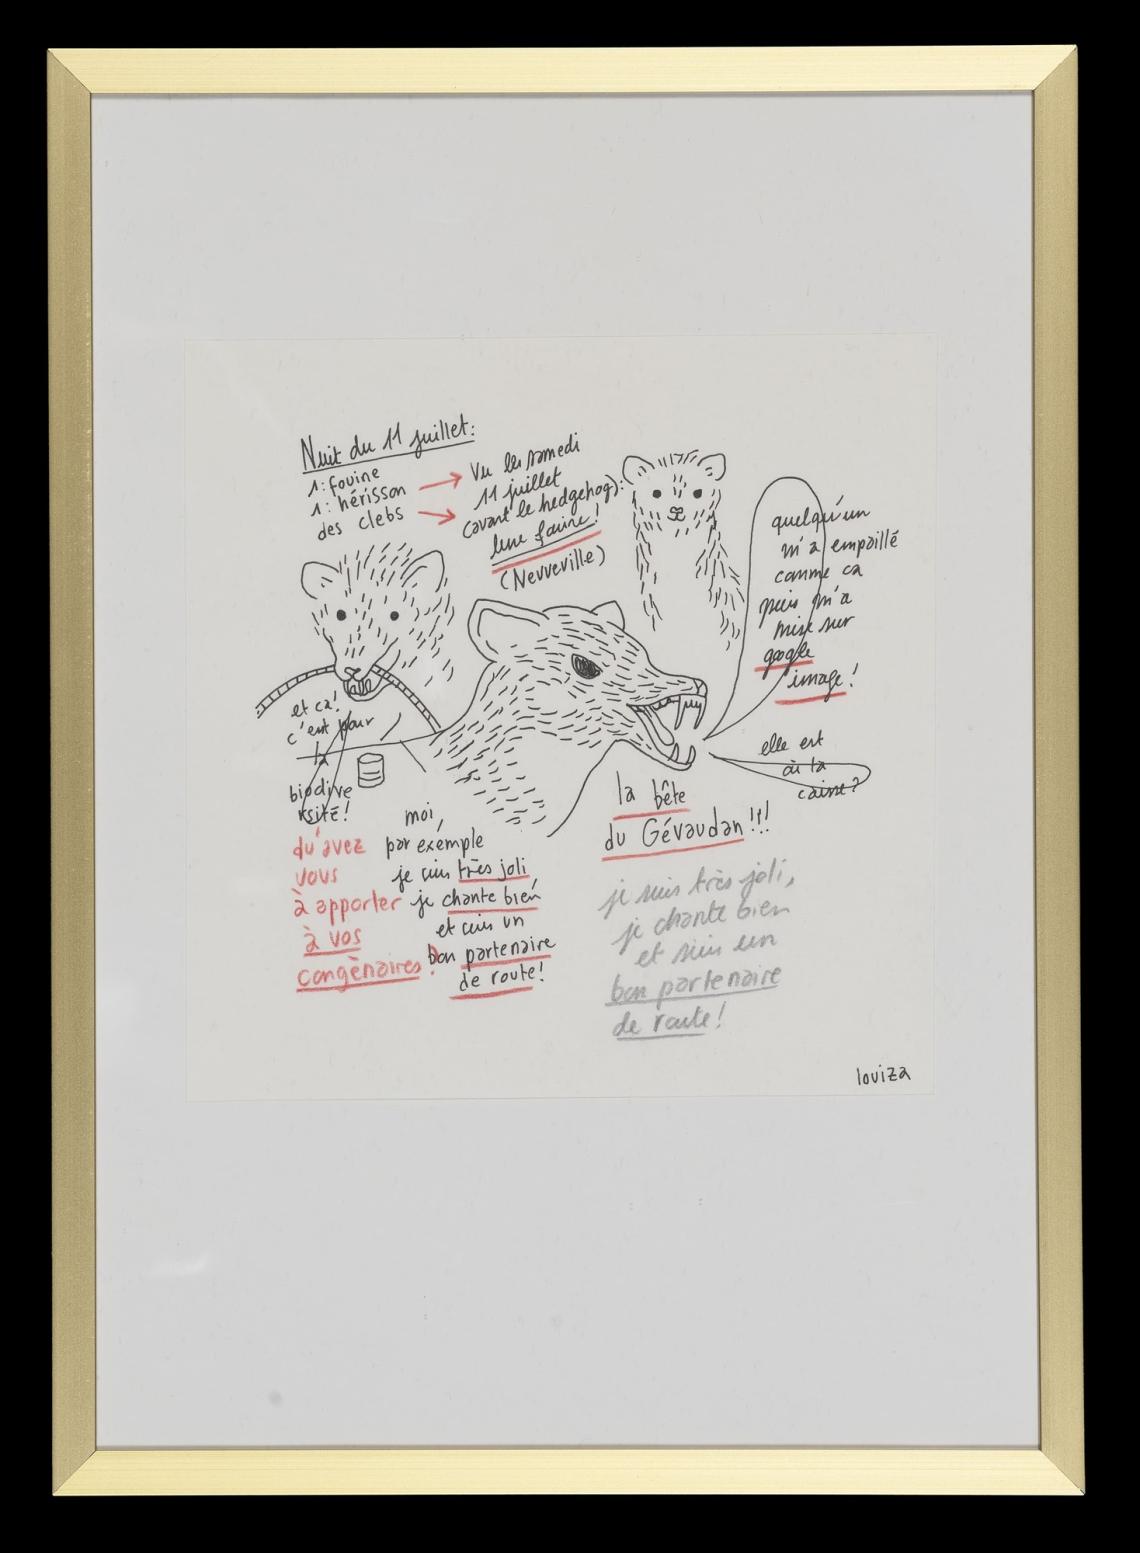 Nuit du 11 juillet:
1: fouine
1: hérisson
des clebs
Vu le samedi
11 juillet
(avant le hedgehog):
une fouine!
(Neuveville)
quelqu'un
m'a empaillé
comme ca
puis m'a
mise sur
google
image!
et ca!
c'est pour
la
biodive
rsité!
elle est
où la
caisse?
la bête
du Gévaudan!!!
qu'avez
vous
à apporter
à vos
congènaires?
moi,
par exemple
je suis très joli,
je chante bien
et suis un
bon partenaire
de route!
je suis très joli,
je chante bien
et suis un
bon partenaire
de route!
louiza